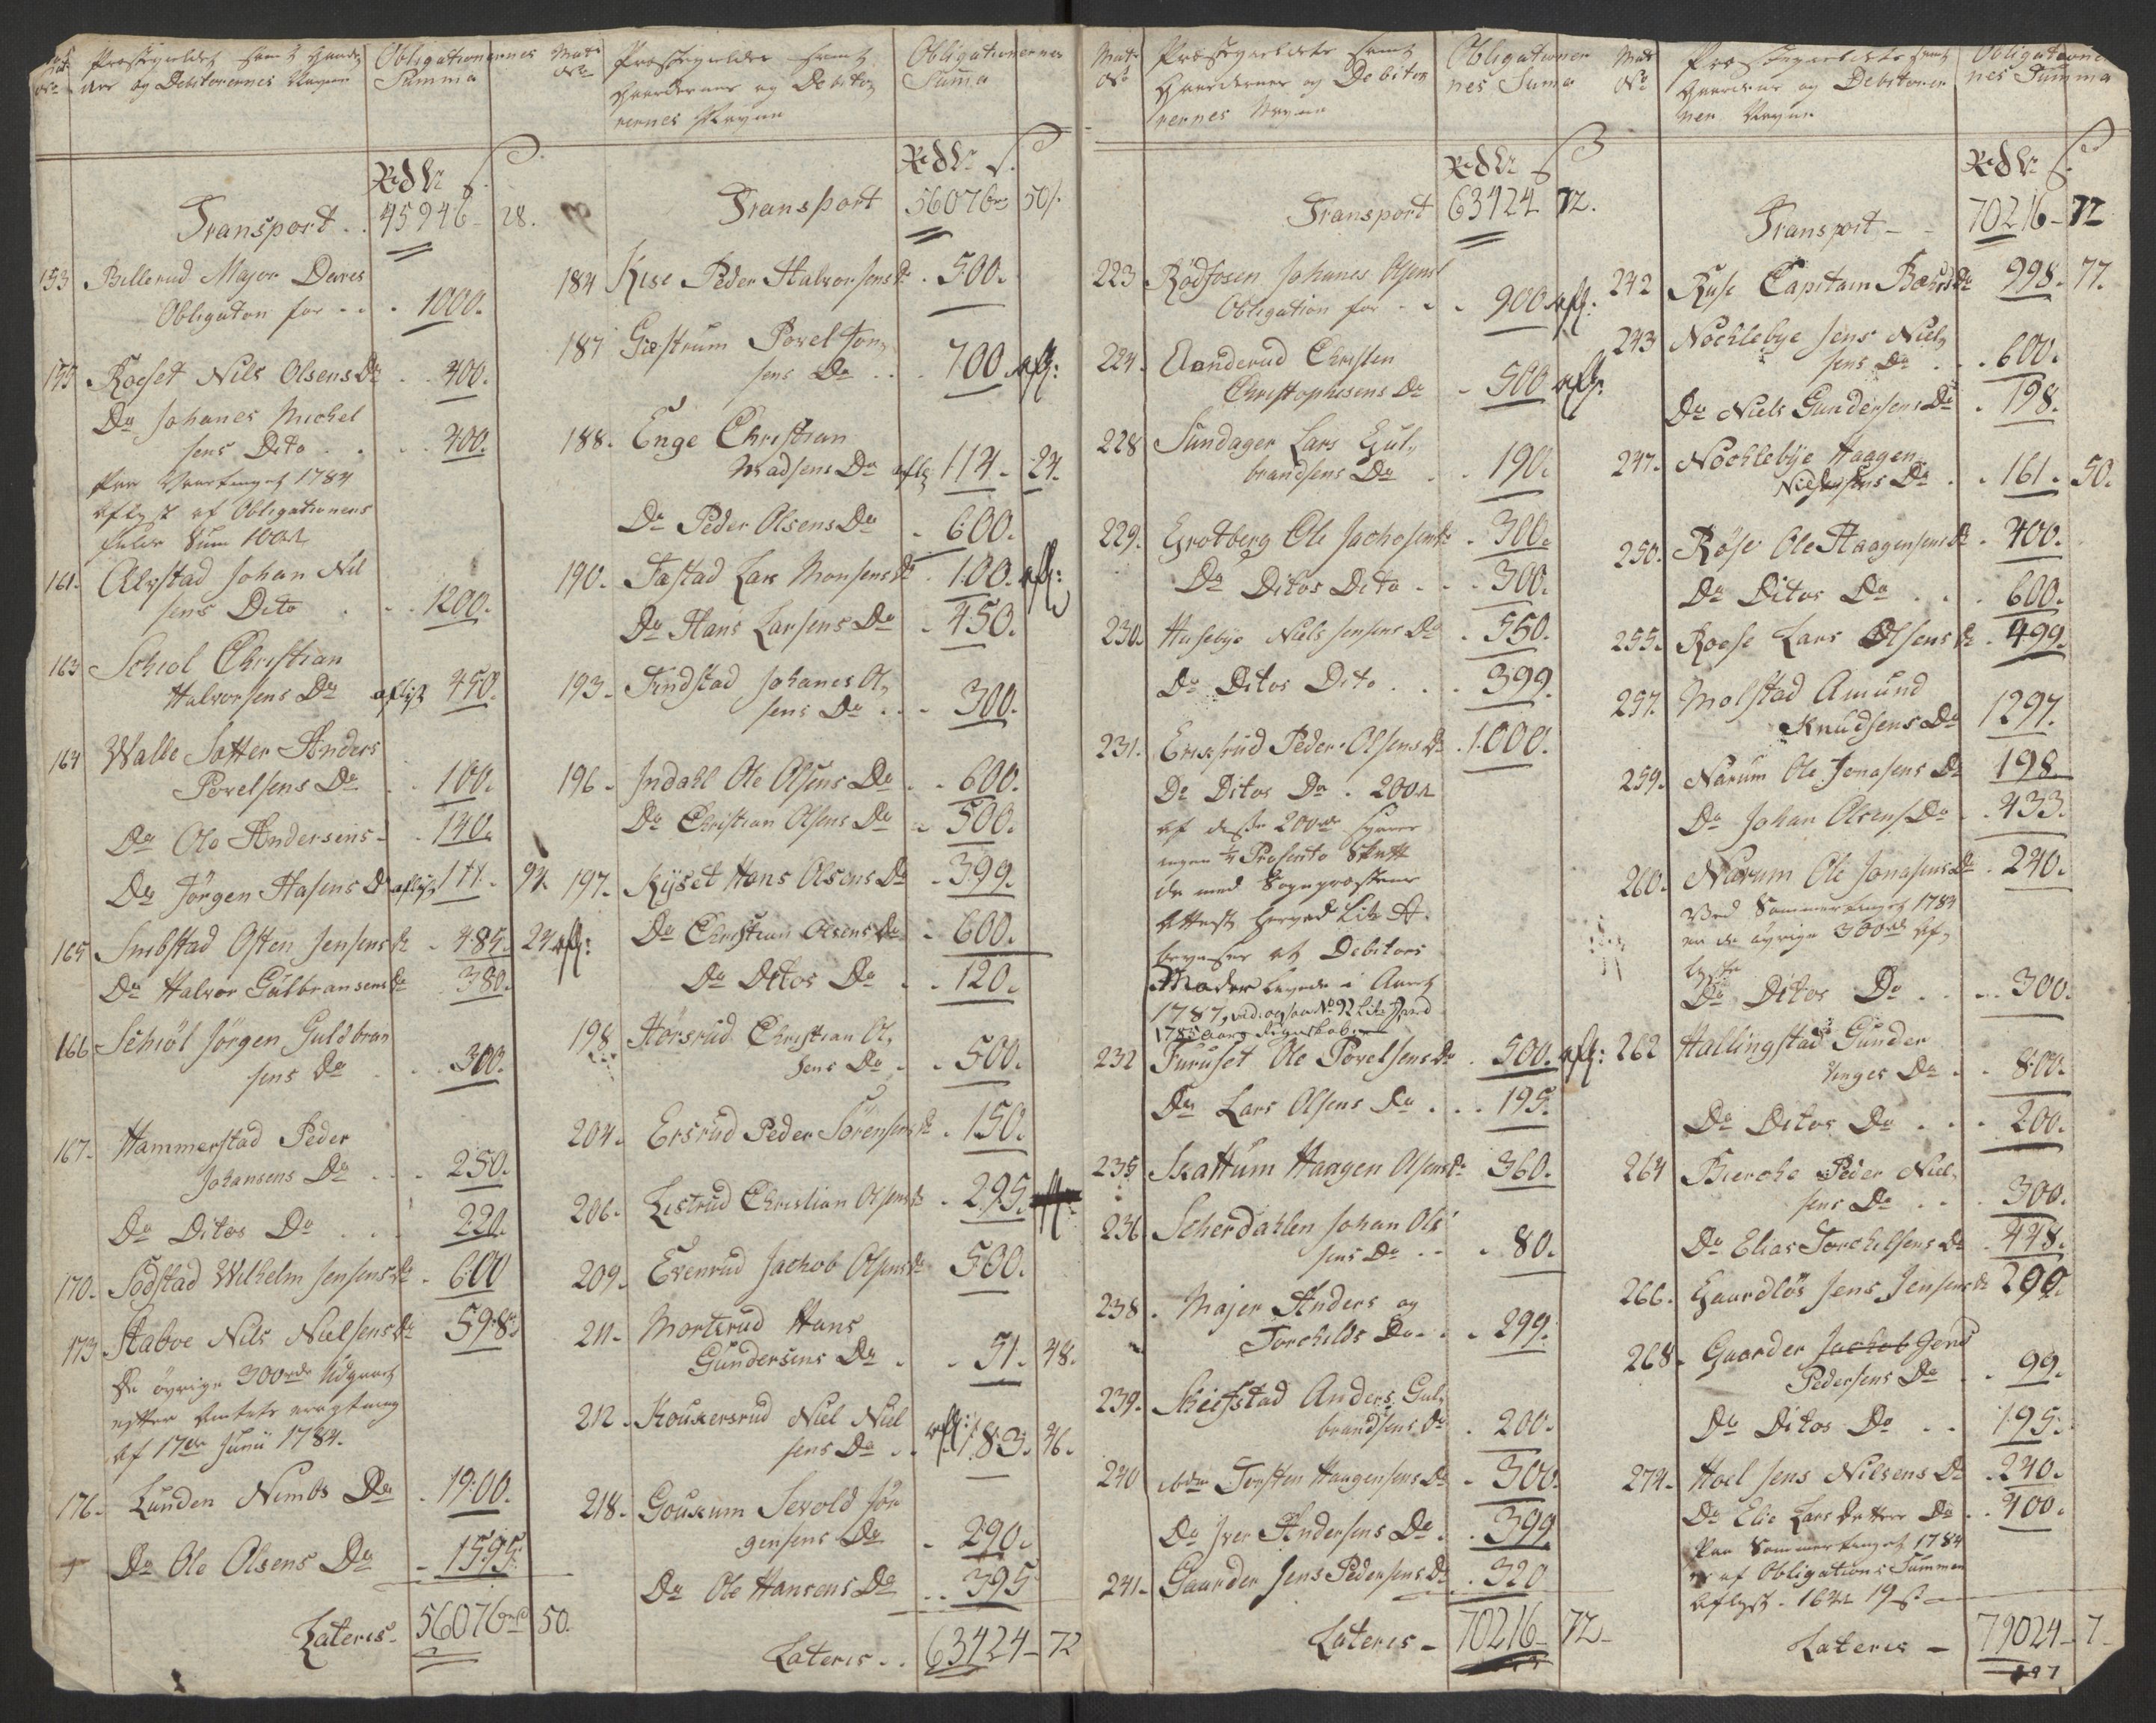 Mat: No Præstegieldet samt Gaarder
ner og Debitorernes Navne
Obligationernes
Summa
Rdlr s.
Transport . . 45946 - 28.
153 Billerud Major Deres
Obligaton for - . . 1000.
155 Roeset Nils Olsens Do . . 400.
Do Johanes Michel
sens Dito . . . 400.
Paa Vaartinget 1784
aflyst af Obligationens
fulde Sum 100rd
161. Alvstad Johan Nil
sens Dito . . . 1200.
163 Schiol Christian
Halvorsens Do aflyst 450.
164 Walle Satter Anders
Povelsens Do . . 100.
Do Ole Andersens - . 140.
Do Jørgen Hasens D aflyst 111. 94.
165 Smbstad Osten Jensens Do . 485. 24 afl:
Do Halvor Gulbransens Do 380.
166 Schiøl Jørgen Guldbran
sens Do . . . 300.
167. Hammerstad Peder
Johansens Do . . . 250.
Do Ditos Do . . . 220.
170. Sodstad Wilhelm Jensens Do . 600
173 Stabve Nils Nielsens Do 598.
De øvrige 300rd Udgaaet
efter Amtets
af 17de Junii 1784.
176. Lunden Nimbs Do . 1900.
Do Ole Olsens Do . 1595.
Lateris - 56076 50.
Mat: No Præstegieldet samt
Gaardernes og Debito,
rernes Navne
Obligationernes
Suma
Rdlr s.
Transport 56076 50s.
184 Kise Peder Halvorsens Do . 500.
187 Giæstrum Povel Jon,
sens Do . . 700 afl:
188. Enge Christian
Madsens Do afl: 114. 24.
Do Peder Olsens Do . 600.
190. Fastad Lars Monsens Do . 100. afl:
Do Hans Larsens Do . 450.
193. Findstad Johanes Ol,
sens Do . . . 300.
196. Indahl Ole Olsens Do . . 600.
Do Christian Olsens Do . 500.
197. Kyset Hans Olsens Do . 399.
Do Christian Olsens Do . 600.
Do Ditos Do . . 120.
198 Horsrud Christian Ol,
sens Do . . 500.
204. Ersrud Peder Sörensens Do . 150.
206. Listrud Christian Olsens Do . 295.
209. Evenrud Jachob Olsens Do 500.
211. Mortsrud Hans
Gundersens Do . . 51. 48.
212. Kouxersrud Niel Niel
sens Do . . afl: 183. 46.
218. Gouxum Sevold Jör
gensens Do . 290.
Do Ole Hansens Do . . 395
Lateris . . 63424 - 72
Mat: No Præstegieldets samt
Gaardernes og Debito,
rernes Navne
Obligationer
nes Suma
Rdlr s
Transport 63424 72.
223 Rödfosen Johanes Olsens
Obligation for - . . 900 afl:
224. Aanderud Christen
Christophersens Do . 500 afl:
228 Sundager Lars Gul,
brandsens Do . . 190.
229. Grotberg Ole Jachosens Do . 300.
Do Ditos Dito . . 300.
230. Husebye Niels Jensens Do . 550.
Do Ditos Dito . . . 399.
231. Erixsrud Peder Olsens Do . 1000.
Do Ditos Do . 200rd
af disse 200rd svares
ingen 1/4 Procento Skatt
da med Sognepræstens
Attest herved Litr A.
bevises at Debitors
Moder levede i Aaret
1787, vid: ogsaa No 92 Litr J ved
1785 Aars Regnskaber
232 Furuset Ole Povelsens Do . 500. afl:
Do Lars Olsens Do . . . 195.
235 Skattum Haagen Olsens Do . 360.
236 Scherdahlen Johan Ols
sens Do . . . 80.
238. Majer Anders og
Torchilds Do . . . 299.
239. Skiefstad Anders Gul,
brandsens Do . 200.
240 ibdm Torsten Haagensens Do . 300.
Do Iver Andersens Do . . 399
241. Gaarder Jens Pedersens Do . . 320
Lateris - 70216 - 72 -
Mat: No Præstegieldets samt
Gaardens og Debitorer
nes Navne
Obligationer
nes Summa
Rdlr s.
Transport - - 70216 - 72
242 Ruse Capitain Do 998. 77.
243 Nochlebye Jens Niel,
sens Do . . . 600.
Do Niels Gundersens Do . 198.
247. Nöchlebye Haagen
Nielsens Do . . 161. 50.
250. Röse Ole Haagensens Do . 400.
Do Ditos Do . . . 600.
255. Roese Lars Olsens Do . 499.
257. Molstad Amund
Knudsens Do 1297.
259. Narum Ole Jonasens Do 198
Do Johan Olsens Do . . 433.
260. Narum Ole Jonasens Do . 240.
Ved Sommertinget 1784
er de øvrige 300rd Af,
lyste
Do Ditos Do . . . 300.
262 Hallingstad Gunder
Unges Do . . 800.
Do Ditos Do . . . 200.
264 Bierche Peder Niel,
sens Do . . . 300.
Do Elias Torchilsens Do . 448.
266. Gaardlös Jens Jensens Do 299.
268. Gaarder Jachob Jens
Pedersens Do . . 99.
Do Ditos Do . . . 195.
274. Hoel Jens Nilsens Do . 240.
Do Elie Lars Datter Do . . 400.
Paa Sommertinget 1784
er af Obligations Summen
Aflyst . 16rd 19s
Lateris - 79024 - 7 -